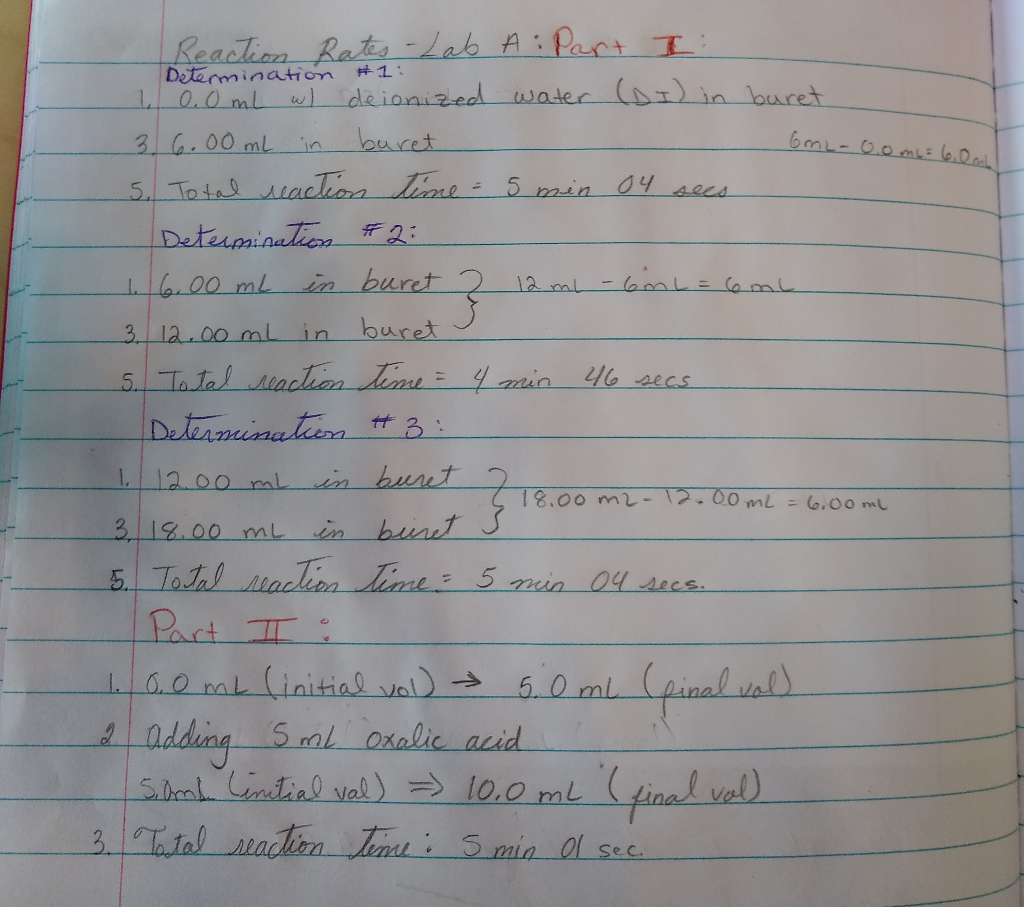 Reaction Rates - Lab A: Part I:
Determination #1:
1. 0.0 mL w/ deionized water (DI) in buret
3. 6.00 mL in buret 6mL - 0.0 mL = 6.0 mL
5. Total reaction time = 5 min 04 secs
Determination #2:
1. 6.00 mL in buret } 12 mL - 6 mL = 6 mL
3. 12.00 mL in buret
5. Total reaction time = 4 min 46 secs
Determination #3:
1. 12.00 mL in buret } 18.00 mL - 12.00 mL = 6.00 mL
3. 18.00 mL in buret
5. Total reaction time = 5 min 04 secs.
Part II:
1. 0.0 mL (initial vol) → 5.0 mL (final vol)
2 adding 5 mL oxalic acid
5.0mL (initial val) ⇒ 10.0 mL (final vol)
3. Total reaction time: 5 min 01 sec.